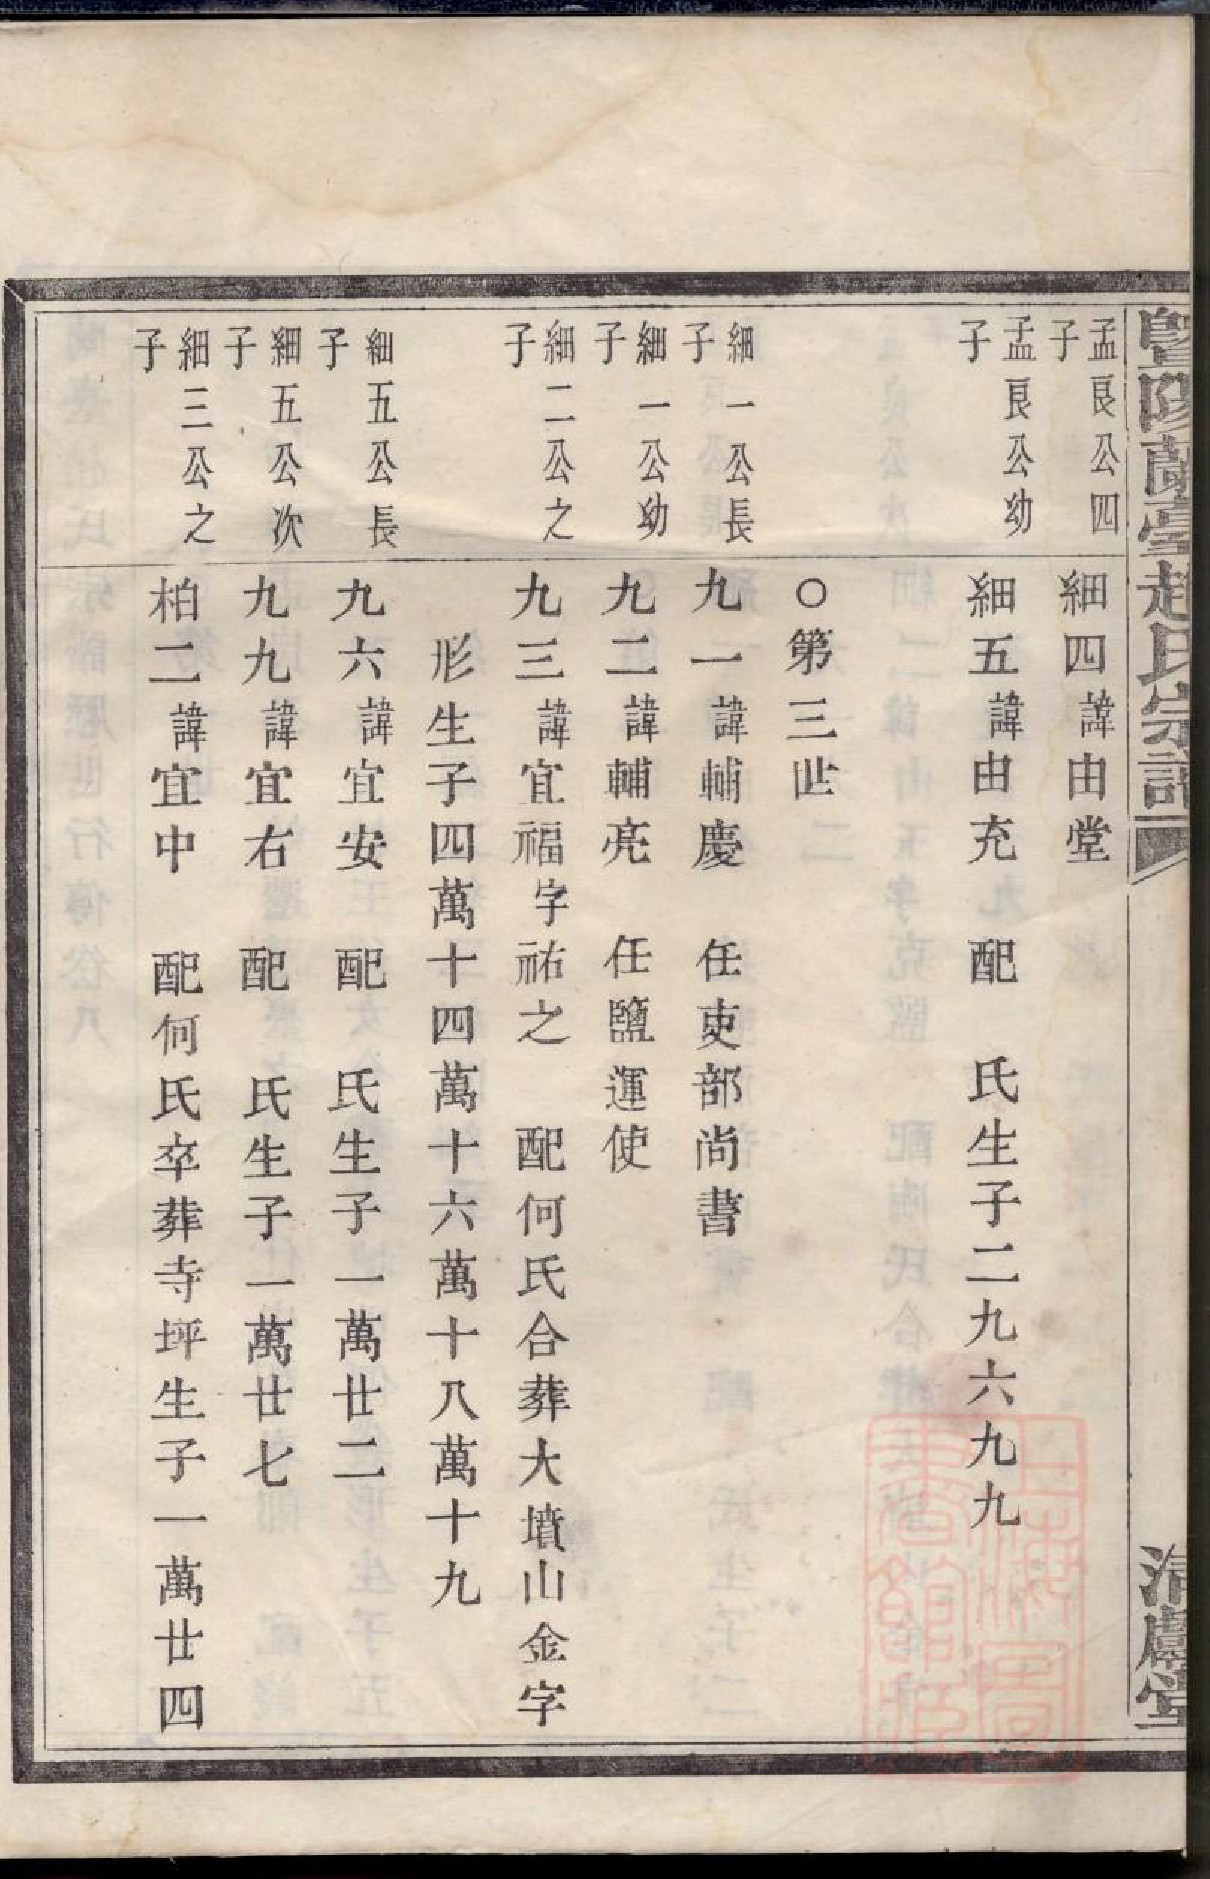 暨陽蘭臺趙氏宗譜
清慮堂
孟良公四子
細四諱由堂
孟良公幼子
細五諱由充 配 氏生子二九六九九
○第三世
細一公長子
九一諱輔慶 任吏部尚書
細一公幼子
九二諱輔亮 任鹽運使
細二公之子
九三諱宜福字祐之 配何氏合葬大墳山金字
形生子四萬十四萬十六萬十八萬十九
細五公長子
九六諱宜安 配 氏生子一萬廿二
細五公次子
九九諱宜右 配 氏生子一萬廿七
細三公之子
柏二諱宜中 配何氏卒葬寺坪生子一萬廿四
上海圖書館藏